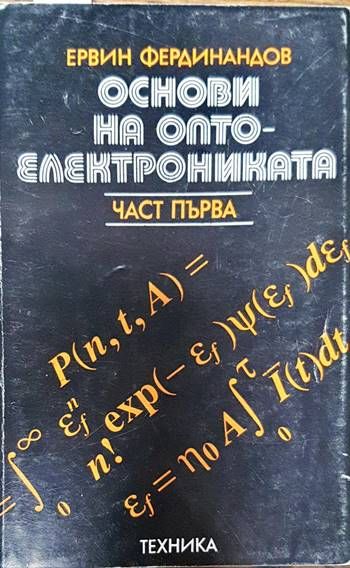 ЕРВИН ФЕРДИНАНДОВ
ОСНОВИ
НА ОПТО-
ЕЛЕКТРОНИКАТА
ЧАСТ ПЪРВА
P(n, t, A) =
= ∫₀^∞ (ε_f^n / n!) exp(− ε_f) ψ(ε_f) dε_f
ε_f = η₀ A ∫₀^τ Ī(t) dt
ТЕХНИКА